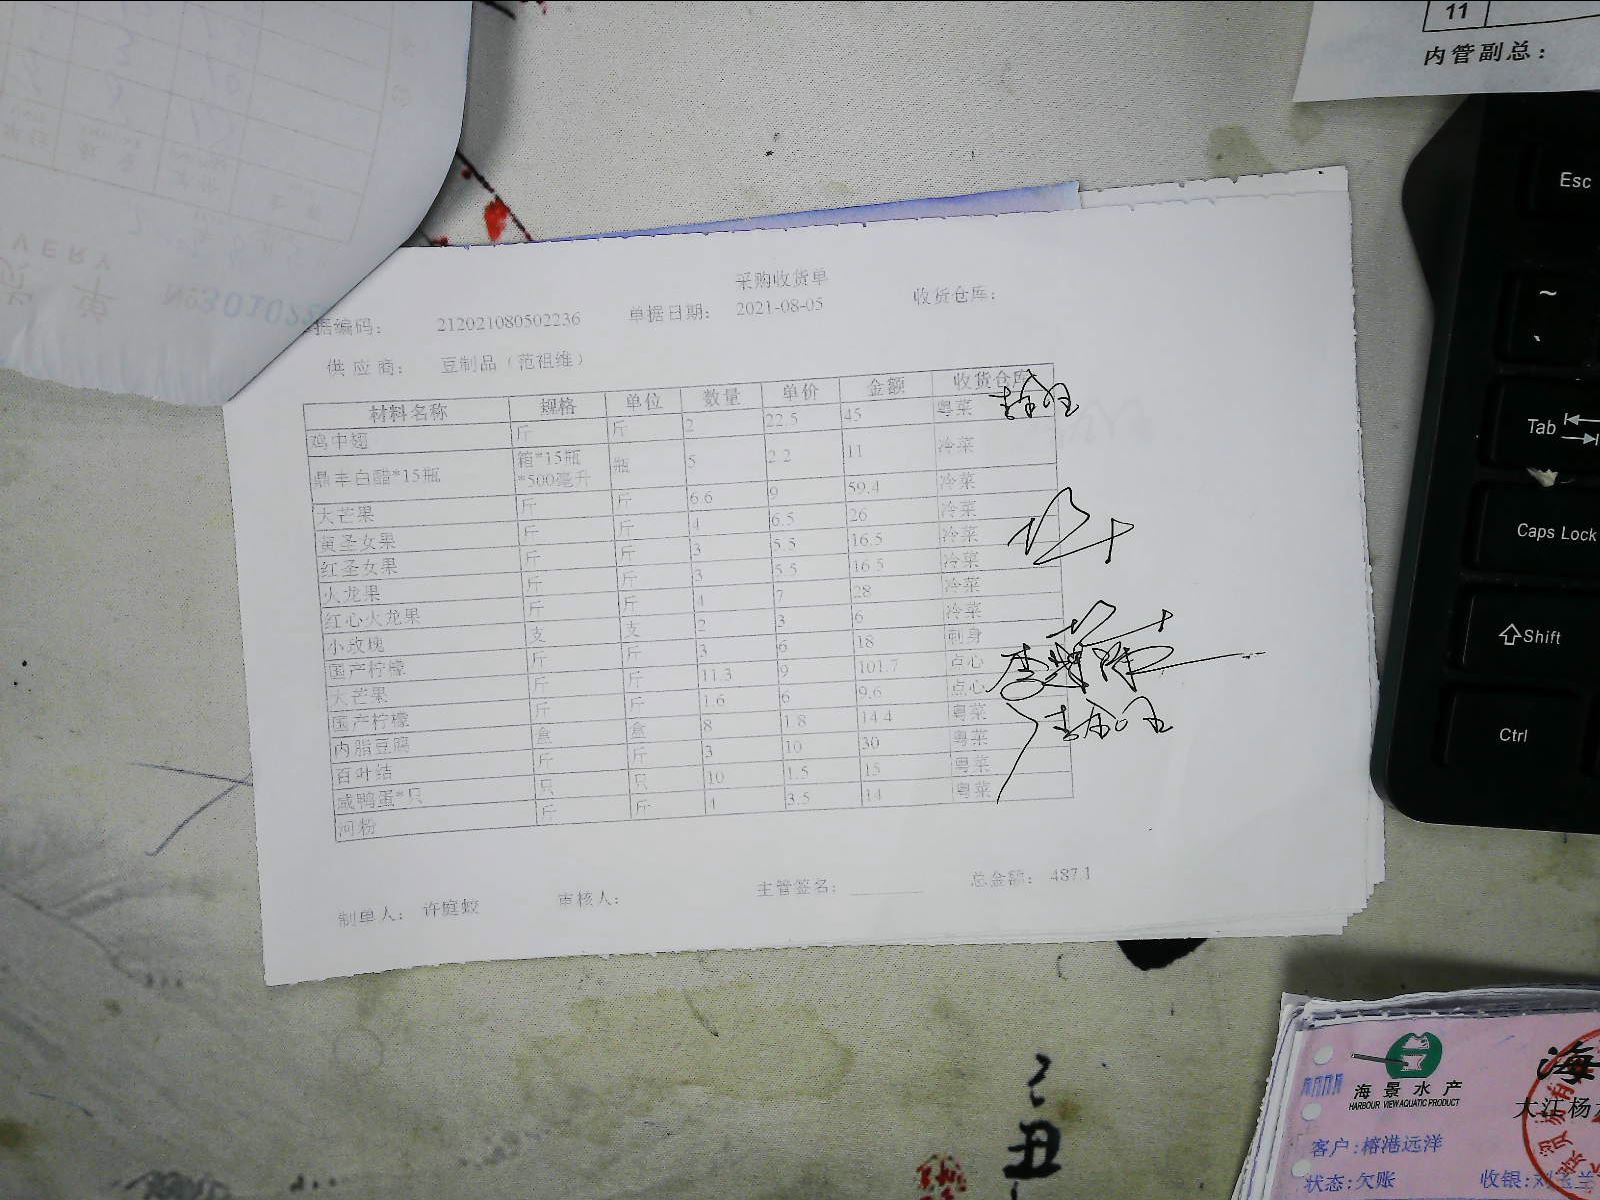 11
内管副总：
采购收货单
据编码： 212021080502236 单据日期： 2021-08-05 收货仓库：
供应商： 豆制品（范祖维）
材料名称 规格 单位 数量 单价 金额 收货仓库
鸡中翅 斤 斤 2 22.5 45 粤菜
鼎丰白醋*15瓶 箱*15瓶*500毫升 瓶 5 2.2 11 冷菜
大芒果 斤 斤 6.6 9 59.4 冷菜
黄圣女果 斤 斤 4 6.5 26 冷菜
红圣女果 斤 斤 3 5.5 16.5 冷菜
火龙果 斤 斤 3 5.5 16.5 冷菜
红心火龙果 斤 斤 4 7 28 冷菜
小玫瑰 支 支 2 3 6 冷菜
国产柠檬 斤 斤 3 6 18 刺身
大芒果 斤 斤 11.3 9 101.7 点心
国产柠檬 斤 斤 1.6 6 9.6 点心
内脂豆腐 盒 盒 8 1.8 14.4 粤菜
百叶结 斤 斤 3 10 30 粤菜
咸鸭蛋*只 只 只 10 1.5 15 粤菜
河粉 斤 斤 4 3.5 14 粤菜
制单人： 许庭蛟 审核人： 主管签名： 总金额： 487.1
Esc
~
Tab
Caps Lock
Shift
Ctrl
海景水产
HARBOUR VIEW AQUATIC PRODUCT
海
大江杨
客户:榕港远洋
状态:欠账 收银:刘
丑